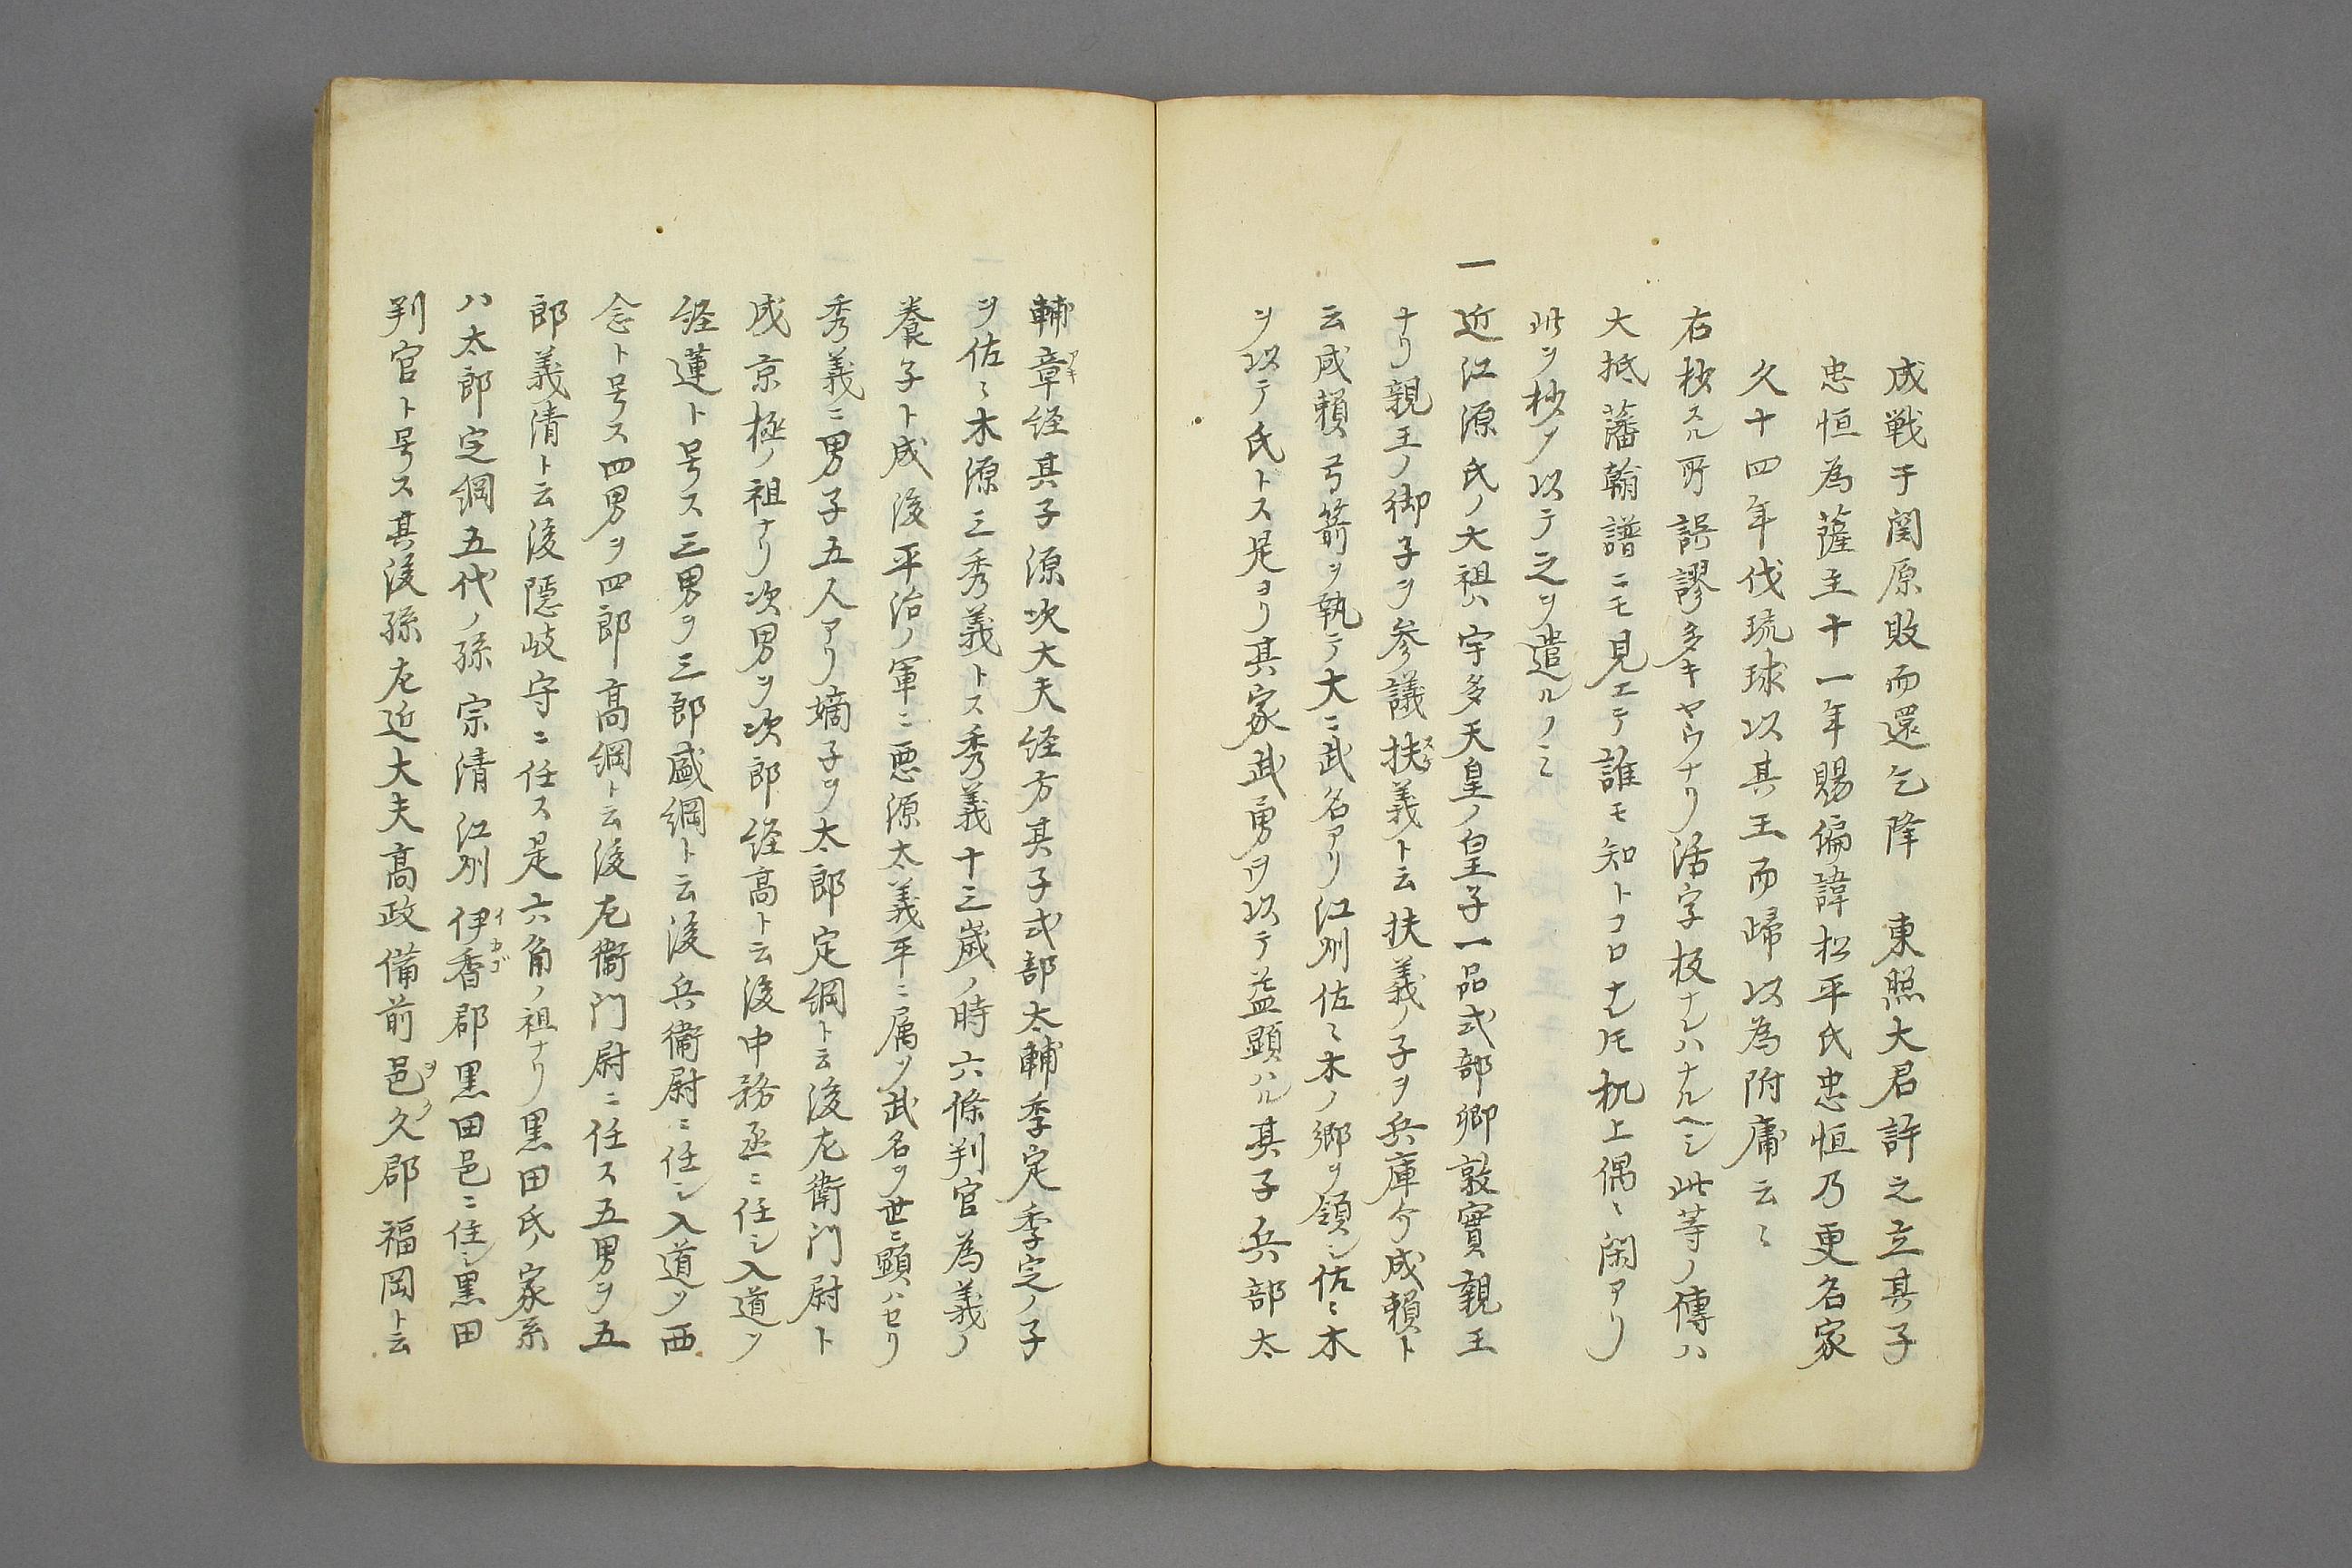 成戦于関原敗而還乞降　東照大君許之立其子
忠恒為薩至十一年賜偏諱松平氏忠恒乃更名家
久十四年伐琉球以其王而歸以為附庸云〻
右抄スル所誤謬多キヤウナリ活字板ナレハナルヘシ此等ノ傳ハ
大抵藩翰譜ニモ見エテ誰モ知トコロナレ𪜈机上偶〻閑アリ
此ヲ抄ノ以テ之ヲ遣ルノミ
一近江源氏ノ大祖ハ宇多天皇ノ皇子一品式部卿敦實親王
ナリ親王ノ御子ヲ参議扶義ト云扶義ノ子ヲ兵庫介成頼ト
云成頼弓箭ヲ執テ大ニ武名アリ江州佐〻木ノ郷ヲ領シ佐〻木
ヲ以テ氏トス是ヨリ其家武勇ヲ以テ益顕ハル其子兵部太
輔章経其子源次大夫経方其子式部太輔季定季定ノ子
ヲ佐〻木源三秀義トス秀義十三歳ノ時六條判官為義ノ
養子ト成後平治ノ軍ニ悪源太義平ニ属ソ武名ヲ世ニ顕ハセリ
秀義ニ男子五人アリ嫡子ヲ太郎定綱ト云後左衛門尉ト
成京極ノ祖ナリ次男ヲ次郎経高ト云後中務丞ニ任シ入道ソ
経蓮ト号ス三男ヲ三郎盛綱ト云後兵衛尉ニ任シ入道ソ西
念ト号ス四男ヲ四郎高綱ト云後左衛門尉ニ任ス五男ヲ五
郎義清ト云後隠岐守ニ任ス是六角ノ祖ナリ黒田氏ノ家系
ハ太郎定綱五代ノ孫宗清江州伊香郡黒田邑ニ住シ黒田
判官ト号ス其後孫左近大夫高政備前邑久郡福岡ト云